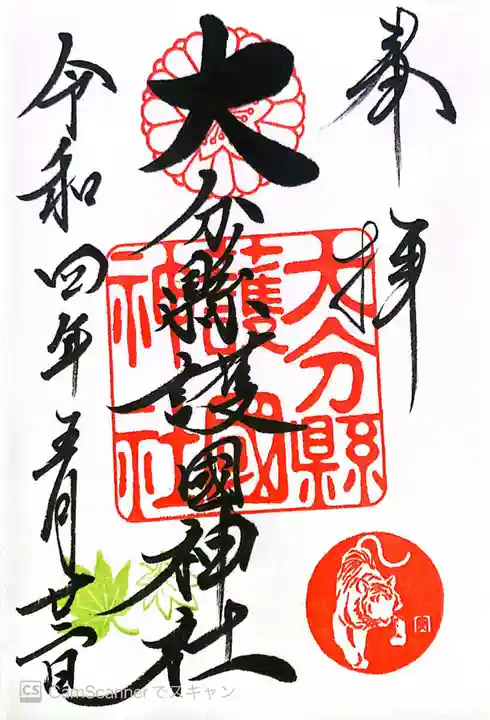 奉拝
大分縣護國神社
大分縣
護國
神社
令和四年五月廿三日
CS CamScannerでスキャン